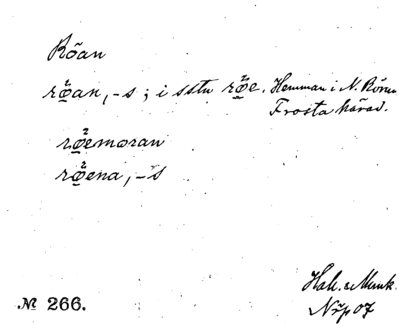 Röan
rø̊̀an, -s; i sstu rø̊̀e. Hemman i N. Rörum
Frosta härad.
rø̊̀emoran
rø̊̀ena, -s
№ 266.
Hak. & Munk.
Nrp 07